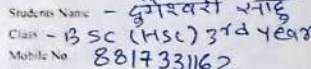 Students Name - दुगेश्वरी साहू
Class - B SC (HSC) 3rd year
Mobile No 8817331162